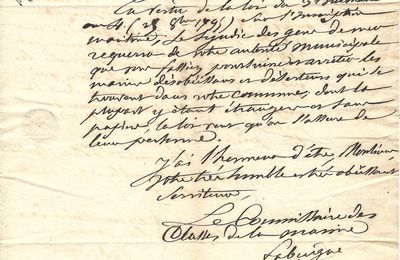 En vertu de la loi du 3 Brumaire
an 4 (25 8bre 1795) sur l'inscription
maritime, le Sindic des gens de mer
requerra de votre autorité municipale
que vous fassiez poursuivre et arrêter les
marins désobéissans et déserteurs qui se
trouvent dans votre commune, dont la
plupart y étant étrangers et sans
papiers, la loi veut qu'on s'assure de
leur personne.
J'ai l'honneur d'être, Monsieur
Votre très humble et très obéissant
Serviteur,
Le Commissaire des
Classes de la marine